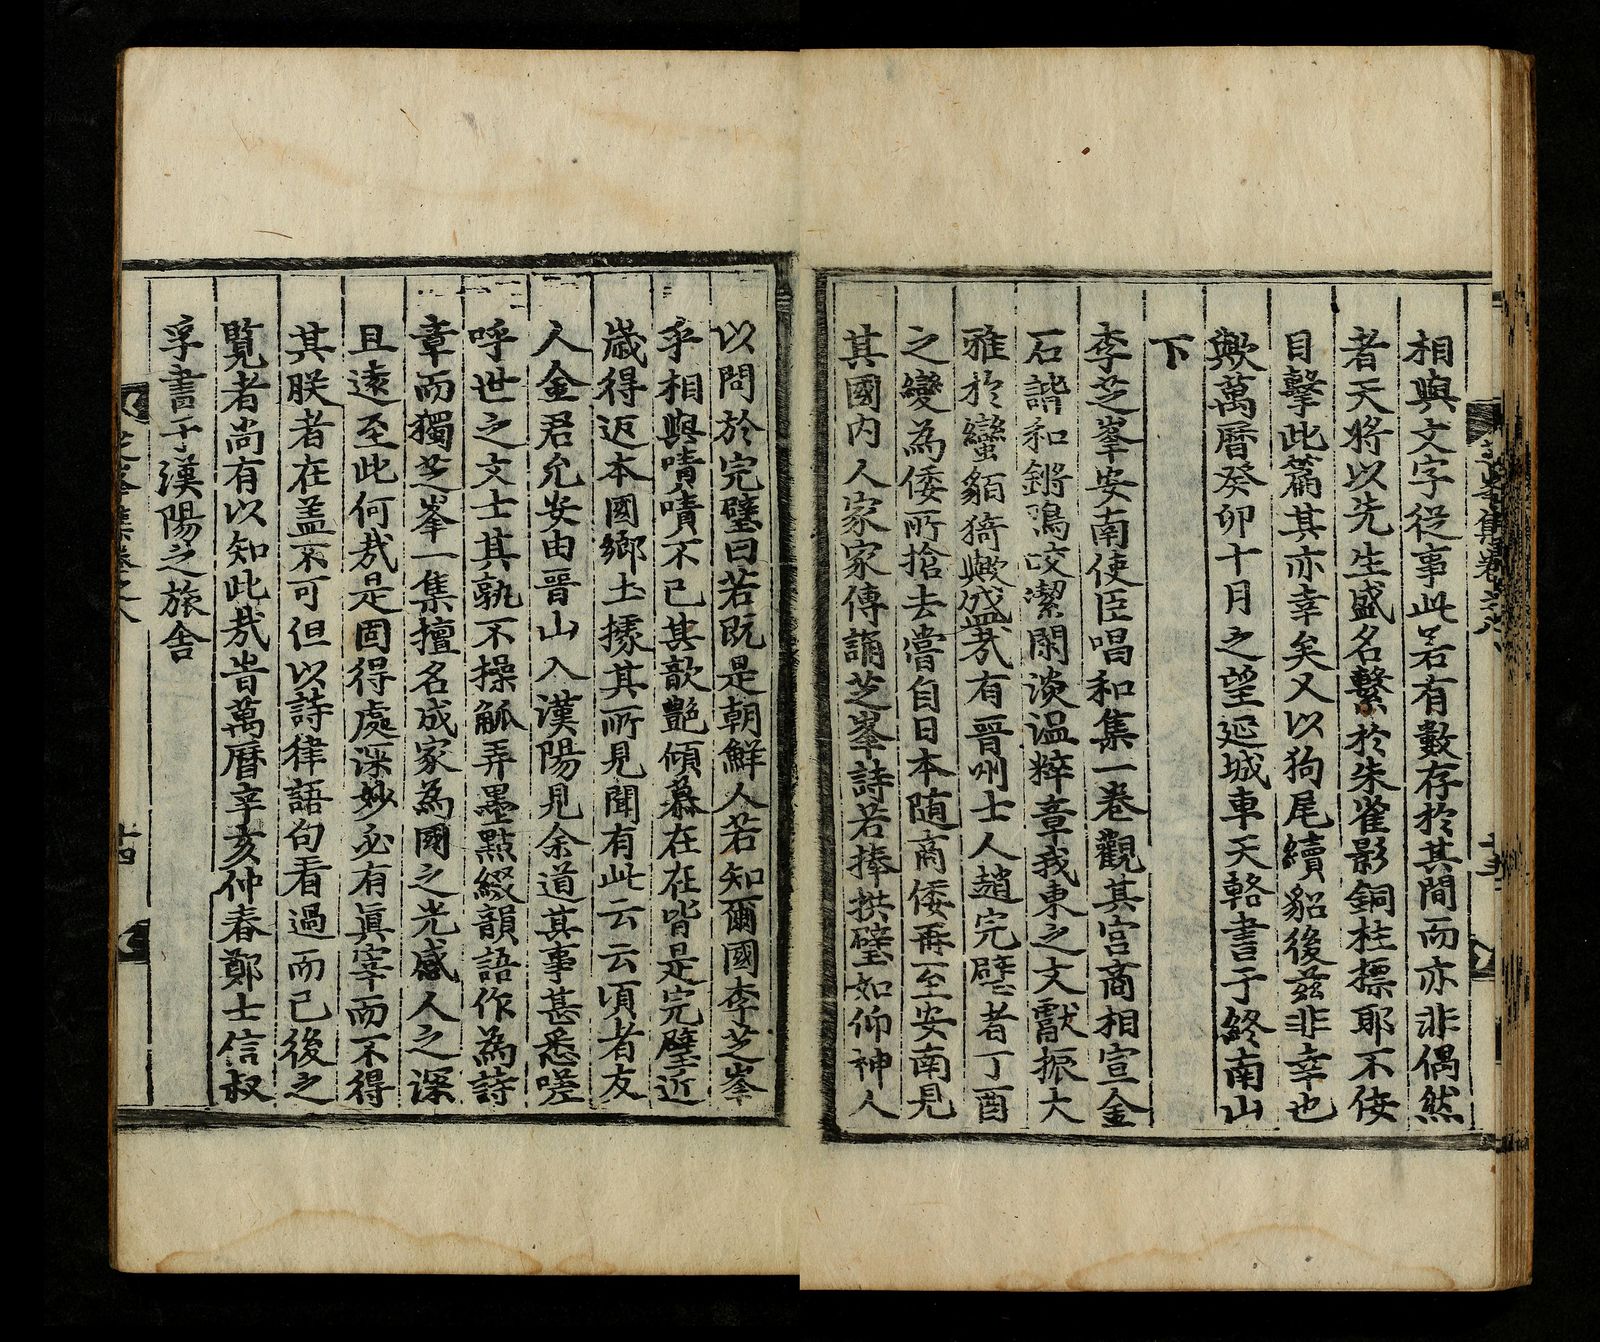 相與文字從事此若有數存於其間而亦非偶然
者天將以先生盛名繫於朱雀影銅柱標耶不佞
目擊此篇其亦幸矣又以狗尾續貂後玆非幸也
歟萬曆癸卯十月之望延城車天輅書于終南山
下
李芝峯安南使臣唱和集一卷觀其宮商相宣金
石諧和鏘鴻皎潔閑淡温粹章我東之文獻振大
雅於蠻貊猗歟盛㢤有晋州士人趙完璧者丁酉
之變為倭所搶去嘗自日本随商倭再至安南見
其國內人家家傳誦芝峯詩若捧拱璧如仰神人
以問於完璧曰若旣是朝鮮人若知爾國李芝峯
乎相與嘖嘖不已其歆艶傾慕在在皆是完璧近
歲得返本國鄉土據其所見聞有此云云頃者友
人金君允安由晋山入漢陽見余道其事甚悉嗟
呼世之文士其孰不操觚弄墨點綴韻語作為詩
章而獨芝峯一集擅名成家為國之光感人之深
且遠至此何㢤是固得處深妙必有眞宰而不得
其朕者在盖不可但以詩律語句看過而已後之
覧者尚有以知此㢤旹萬曆辛亥仲春鄭士信叔
孚書于漢陽之旅舍
芝峯集卷之八
十四